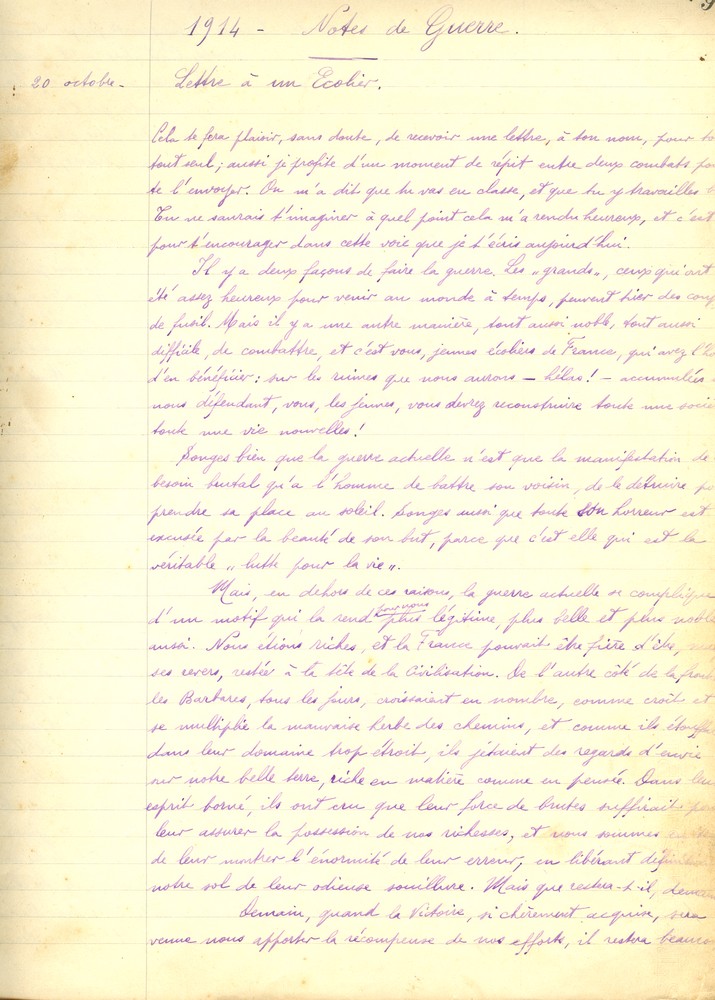 1914 - Notes de Guerre.
20 octobre - Lettre à un Ecolier.
Cela te fera plaisir, sans doute, de recevoir une lettre, à ton nom, pour to
tout seul ; aussi je profite d'un moment de répit entre deux combats po
te l'envoyer. On m'a dit que tu vas en classe, et que tu y travailles
Tu ne saurais t'imaginer à quel point cela m'a rendu heureux, et c'est
pour t'encourager dans cette voie que je t'écris aujourd'hui.
Il y a deux façons de faire la guerre. Les „grands„, ceux qui ont
été assez heureux pour venir au monde à temps, peuvent tirer des coup
de fusil. Mais il y a une autre manière, tout aussi noble, tout aussi
difficile, de combattre, et c'est vous, jeunes écoliers de France, qui avez l'ho
d'en bénéficier : sur les ruines que nous aurons - hélas ! - accumulées
nous défendant, vous, les jeunes, vous devrez reconstruire toute une socié
toute une vie nouvelles !
Songes bien que la guerre actuelle n'est que la manifestation de
besoin brutal qu'a l'homme de battre son voisin, de le détruire po
prendre sa place au soleil. Songes aussi que toute son horreur est
excusée par la beauté de son but, parce que c'est elle qui est la
véritable „lutte pour la vie„.
Mais, en dehors de ces raisons, la guerre actuelle se complique
d'un motif qui la rend pour nous plus légitime, plus belle et plus noble
aussi. Nous étions riches, et la France pouvait être fière d'être,
ses revers, restée à la tête de la Civilisation. De l'autre côté de la front
les Barbares, tous les jours, croissaient en nombre, comme croît et
se multiplie la mauvaise herbe des chemins, et comme ils étouffa
dans leur domaine trop étroit, ils jetaient des regards d'envie
sur notre belle terre, riche en matière comme en pensée. Dans leu
esprit borné, ils ont cru que leur force de brutes suffirait po
leur assurer la possession de nos richesses, et nous sommes
de leur montrer l'énormité de leur erreur, en libérant définitiv
notre sol de leur odieuse souillure. Mais que restera-t-il, demain
Demain, quand la Victoire, si chèrement acquise, sera
venue nous apporter la récompense de nos efforts, il restera beauco